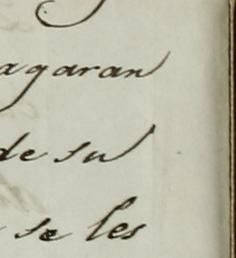 agaran
de su
se les